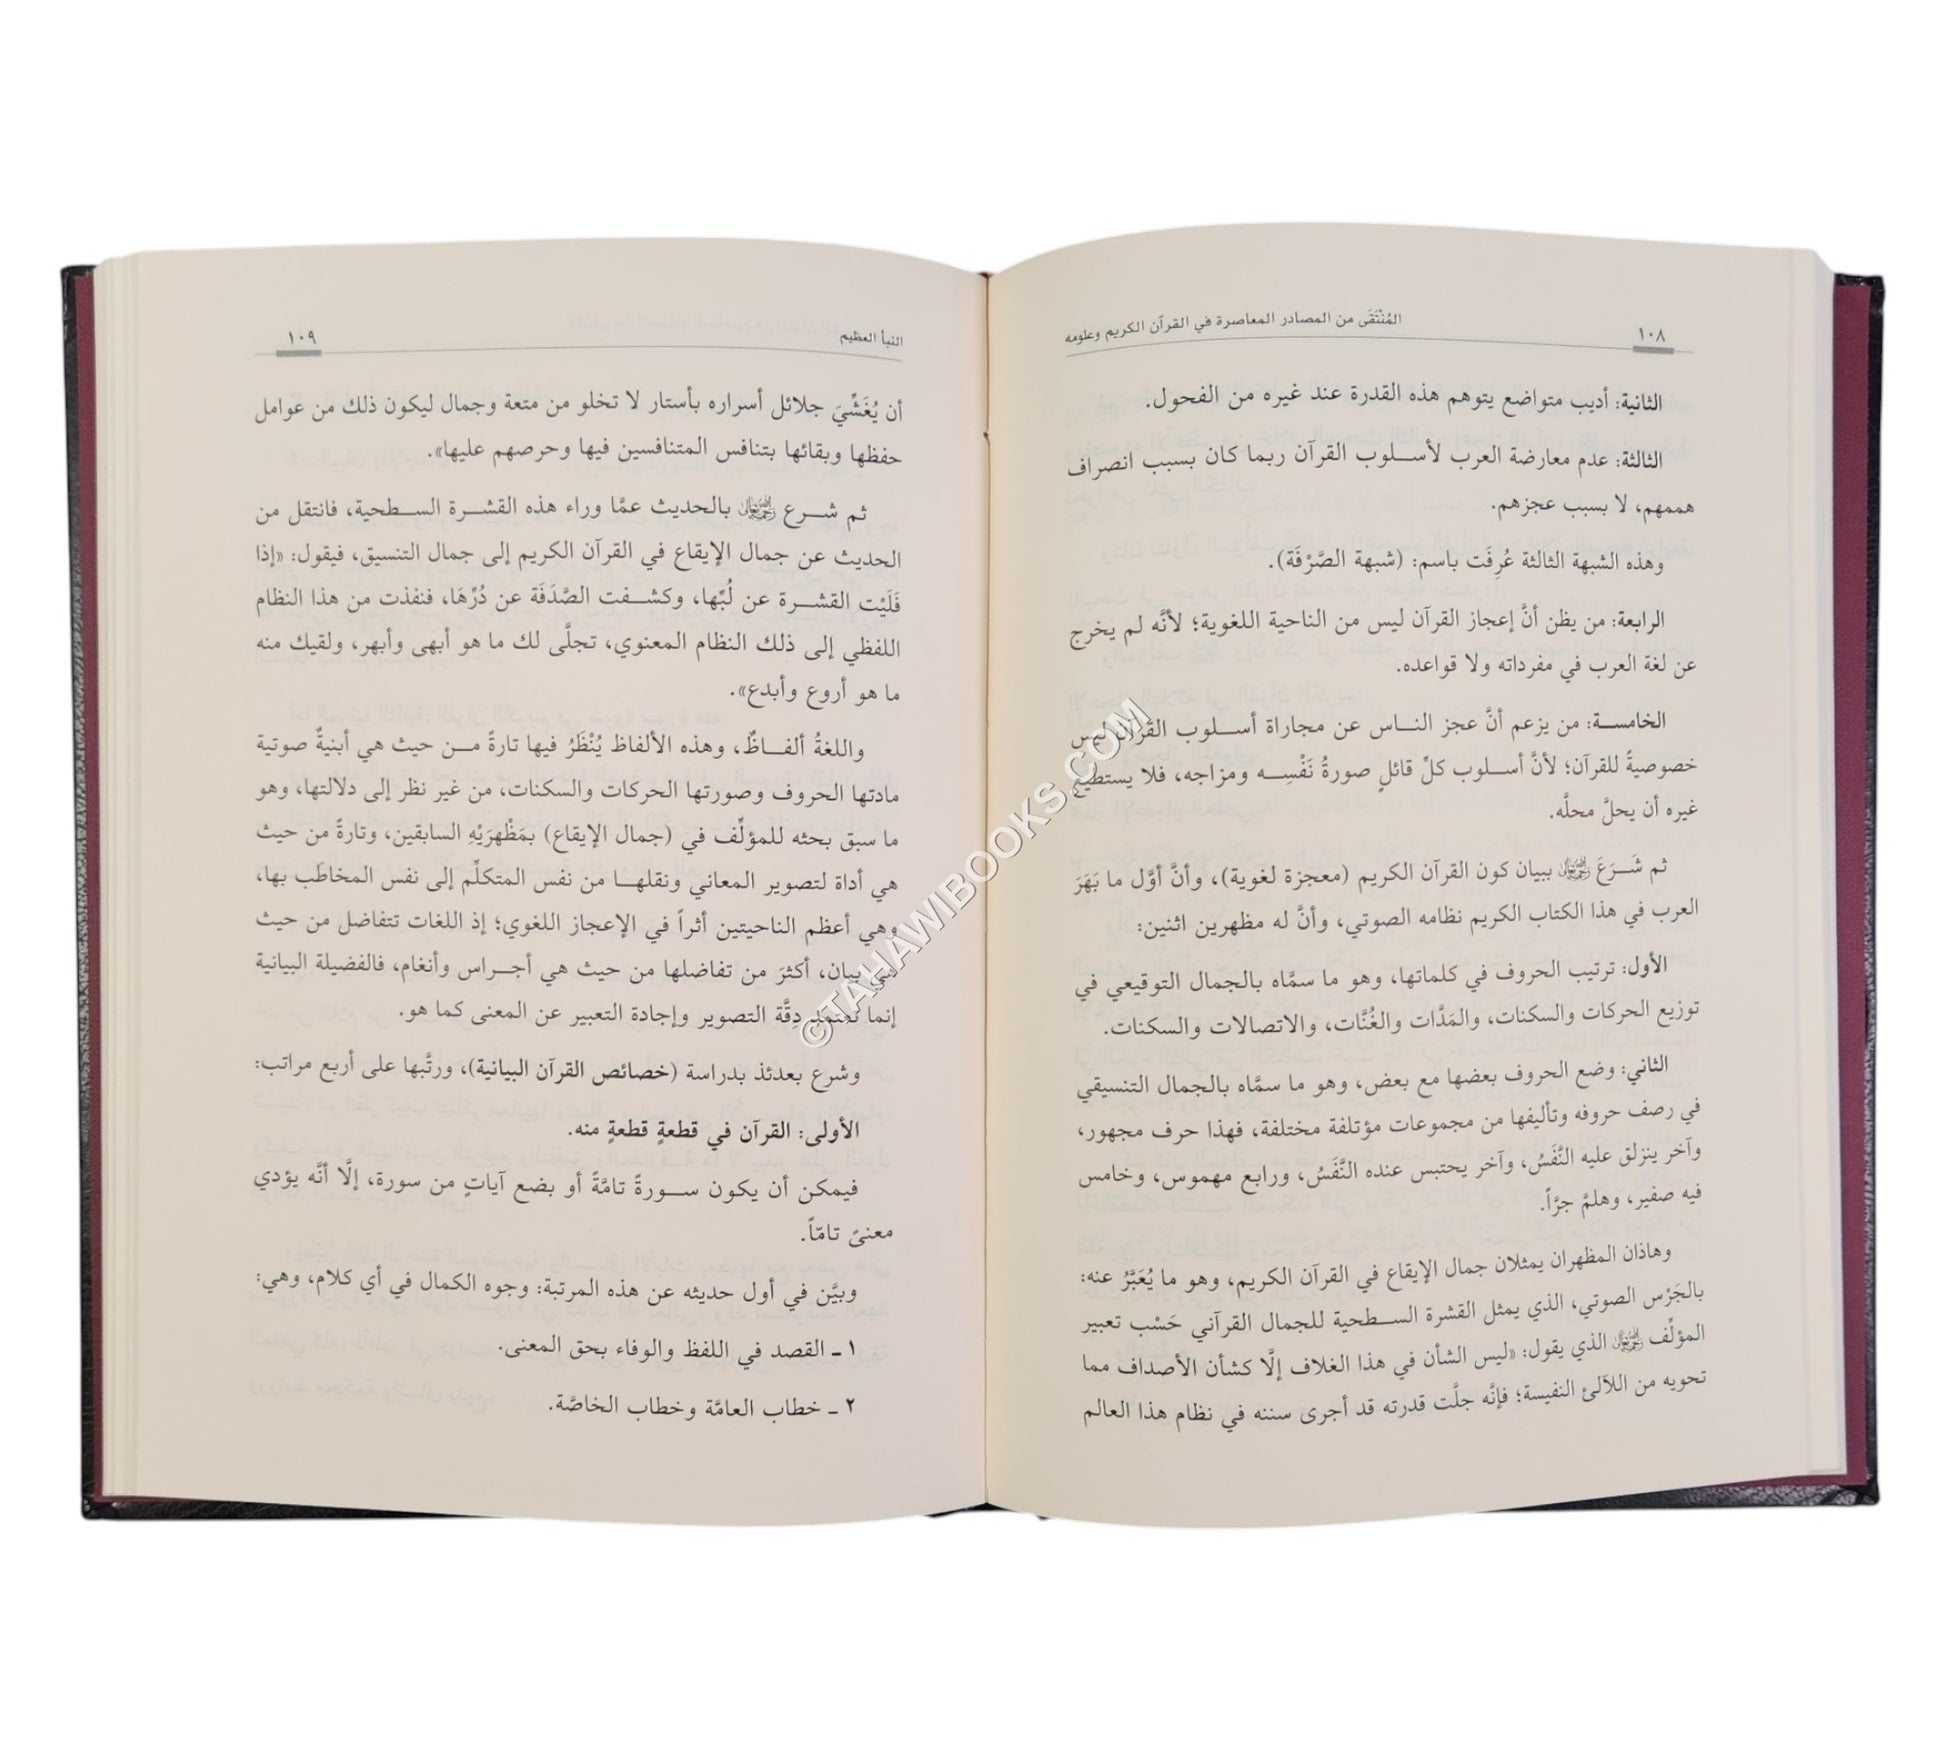 ١٠٨
المُنْتَقَى من المصادر المعاصرة في القرآن الكريم وعلومه
الثانية: أديب متواضع يتوهم هذه القدرة عند غيره من الفحول.
الثالثة: عدم معارضة العرب لأسلوب القرآن ربما كان بسبب انصراف
هممهم، لا بسبب عجزهم.
وهذه الشبهة الثالثة عُرِفَت باسم: (شبهة الصَّرْفَة).
الرابعة: من يظن أنَّ إعجاز القرآن ليس من الناحية اللغوية؛ لأنَّه لم يخرج
عن لغة العرب في مفرداته ولا قواعده.
الخامسة: من يزعم أنَّ عجز الناس عن مجاراة أسلوب القرآن ليس
خصوصيةً للقرآن؛ لأنَّ أسلوب كلِّ قائلٍ صورةُ نَفْسِه ومزاجه، فلا يستطيع
غيره أن يحلَّ محلَّه.
ثم شَرَعَ رَحِمَهُ اللهُ ببيان كون القرآن الكريم (معجزة لغوية)، وأنَّ أوَّل ما بَهَرَ
العرب في هذا الكتاب الكريم نظامه الصوتي، وأنَّ له مظهرين اثنين:
الأول: ترتيب الحروف في كلماتها، وهو ما سمَّاه بالجمال التوقيعي في
توزيع الحركات والسكنات، والمَدَّات والغُنَّات، والاتصالات والسكنات.
الثاني: وضع الحروف بعضها مع بعض، وهو ما سمَّاه بالجمال التنسيقي
في رصف حروفه وتأليفها من مجموعات مؤتلفة مختلفة، فهذا حرف مجهور،
وآخر ينزلق عليه النَّفَسُ، وآخر يحتبس عنده النَّفَسُ، ورابع مهموس، وخامس
فيه صفير، وهلمَّ جرَّاً.
وهاذان المظهران يمثلان جمال الإيقاع في القرآن الكريم، وهو ما يُعَبَّرُ عنه:
بالجَرْس الصوتي، الذي يمثل القشرة السطحية للجمال القرآني حَسْب تعبير
المؤلِّف رَحِمَهُ اللهُ الذي يقول: «ليس الشأن في هذا الغلاف إلَّا كشأن الأصداف مما
تحويه من اللآلئ النفيسة؛ فإنَّه جلَّت قدرته قد أجرى سننه في نظام هذا العالم
النبأ العظيم
١٠٩
أن يُغَشِّيَ جلائل أسراره بأستار لا تخلو من متعة وجمال ليكون ذلك من عوامل
حفظها وبقائها بتنافس المتنافسين فيها وحرصهم عليها».
ثم شرع رَحِمَهُ اللهُ بالحديث عمَّا وراء هذه القشرة السطحية، فانتقل من
الحديث عن جمال الإيقاع في القرآن الكريم إلى جمال التنسيق، فيقول: «إذا
فَلَيْت القشرة عن لُبِّها، وكشفت الصَّدَفَة عن دُرِّهَا، فنفذت من هذا النظام
اللفظي إلى ذلك النظام المعنوي، تجلَّى لك ما هو أبهى وأبهر، ولقيك منه
ما هو أروع وأبدع».
واللغةُ ألفاظٌ، وهذه الألفاظ يُنْظَرُ فيها تارةً من حيث هي أبنيةٌ صوتية
مادتها الحروف وصورتها الحركات والسكنات، من غير نظر إلى دلالتها، وهو
ما سبق بحثه للمؤلِّف في (جمال الإيقاع) بمَظْهرَيْهِ السابقين، وتارةً من حيث
هي أداة لتصوير المعاني ونقلها من نفس المتكلِّم إلى نفس المخاطَب بها،
وهي أعظم الناحيتين أثراً في الإعجاز اللغوي؛ إذ اللغات تتفاضل من حيث
هي بيان، أكثرَ من تفاضلها من حيث هي أجراس وأنغام، فالفضيلة البيانية
إنما تعتمد دِقَّة التصوير وإجادة التعبير عن المعنى كما هو.
وشرع بعدئذ بدراسة (خصائص القرآن البيانية)، ورتَّبها على أربع مراتب:
الأولى: القرآن في قطعةٍ قطعةٍ منه.
فيمكن أن يكون سورةً تامَّةً أو بضع آياتٍ من سورة، إلَّا أنَّه يؤدي
معنىً تامّاً.
وبيَّن في أول حديثه عن هذه المرتبة: وجوه الكمال في أي كلام، وهي:
١ ـ القصد في اللفظ والوفاء بحق المعنى.
٢ ـ خطاب العامَّة وخطاب الخاصَّة.
©TAHAWIBOOKS.COM